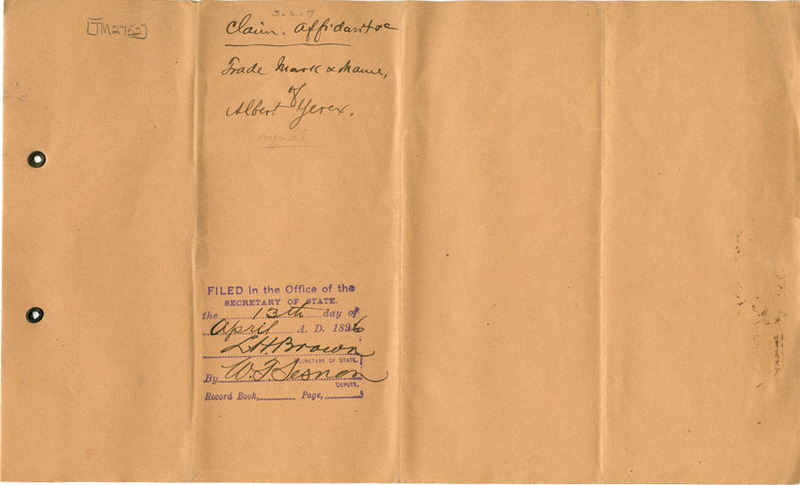 [TM2752]
Claim. Affidavit &c
Trade Mark & Name,
of
Albert Yerex.
original
FILED in the Office of the
SECRETARY OF STATE.
the 13th day of
April A. D. 1896
L.H. Brown
SECRETARY OF STATE.
By W. F. Sesnon
DEPUTY.
Record Book, Page,